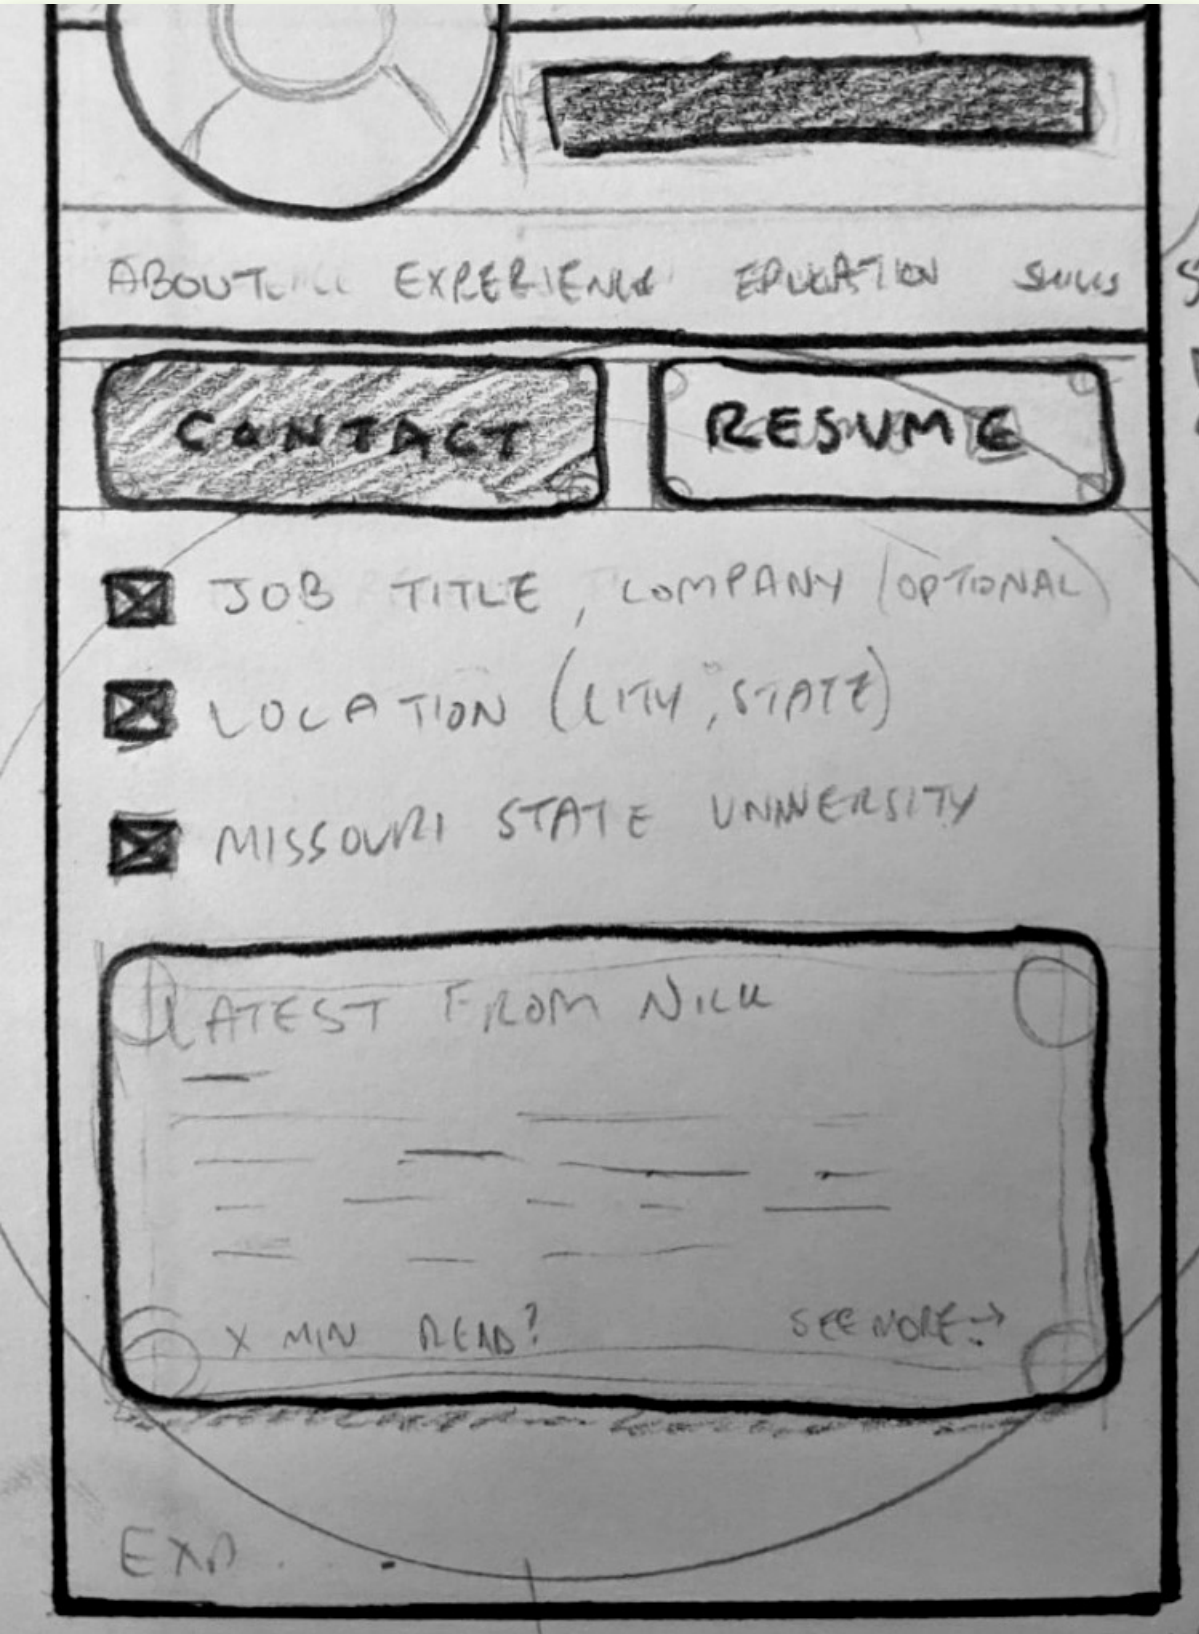 ABOUT EXPERIENCE EDUCATION SKILLS
CONTACT RESUME
JOB TITLE, COMPANY (OPTIONAL)
LOCATION (CITY, STATE)
MISSOURI STATE UNIVERSITY
LATEST FROM NICK
X MIN READ? SEE MORE →
EXP